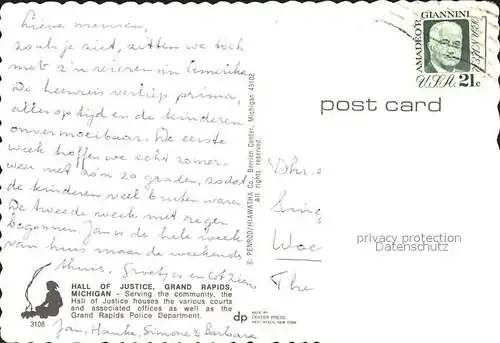 Lieve mensen,
zoals je ziet, zitten we toch
met z'n vieren in Amerika.
De heenreis verliep prima,
alles op tijd en de kinderen
onvermoeibaar. De eerste
week troffen we echt zomer-
weer met zo'n 20 graden, zodat
de kinderen veel buiten waren.
De tweede week met regen
begonnen. Jan is de hele week
van huis maar de weekends
thuis. Groetjes en tot ziens
Jan, Hanke, Simone & Barbara
HALL OF JUSTICE, GRAND RAPIDS,
MICHIGAN - Serving the community, the
Hall of Justice houses the various courts
and associated offices as well as the
Grand Rapids Police Department.
3108
© PENROD/HIAWATHA Co., Berrien Center, Michigan 49102
All rights reserved.
dp
MADE BY
DEXTER PRESS
WEST NYACK, NEW YORK
AMADEO P. GIANNINI
USA 21c
post card
Dhr
Sing
Woe
The
privacy protection
Datenschutz